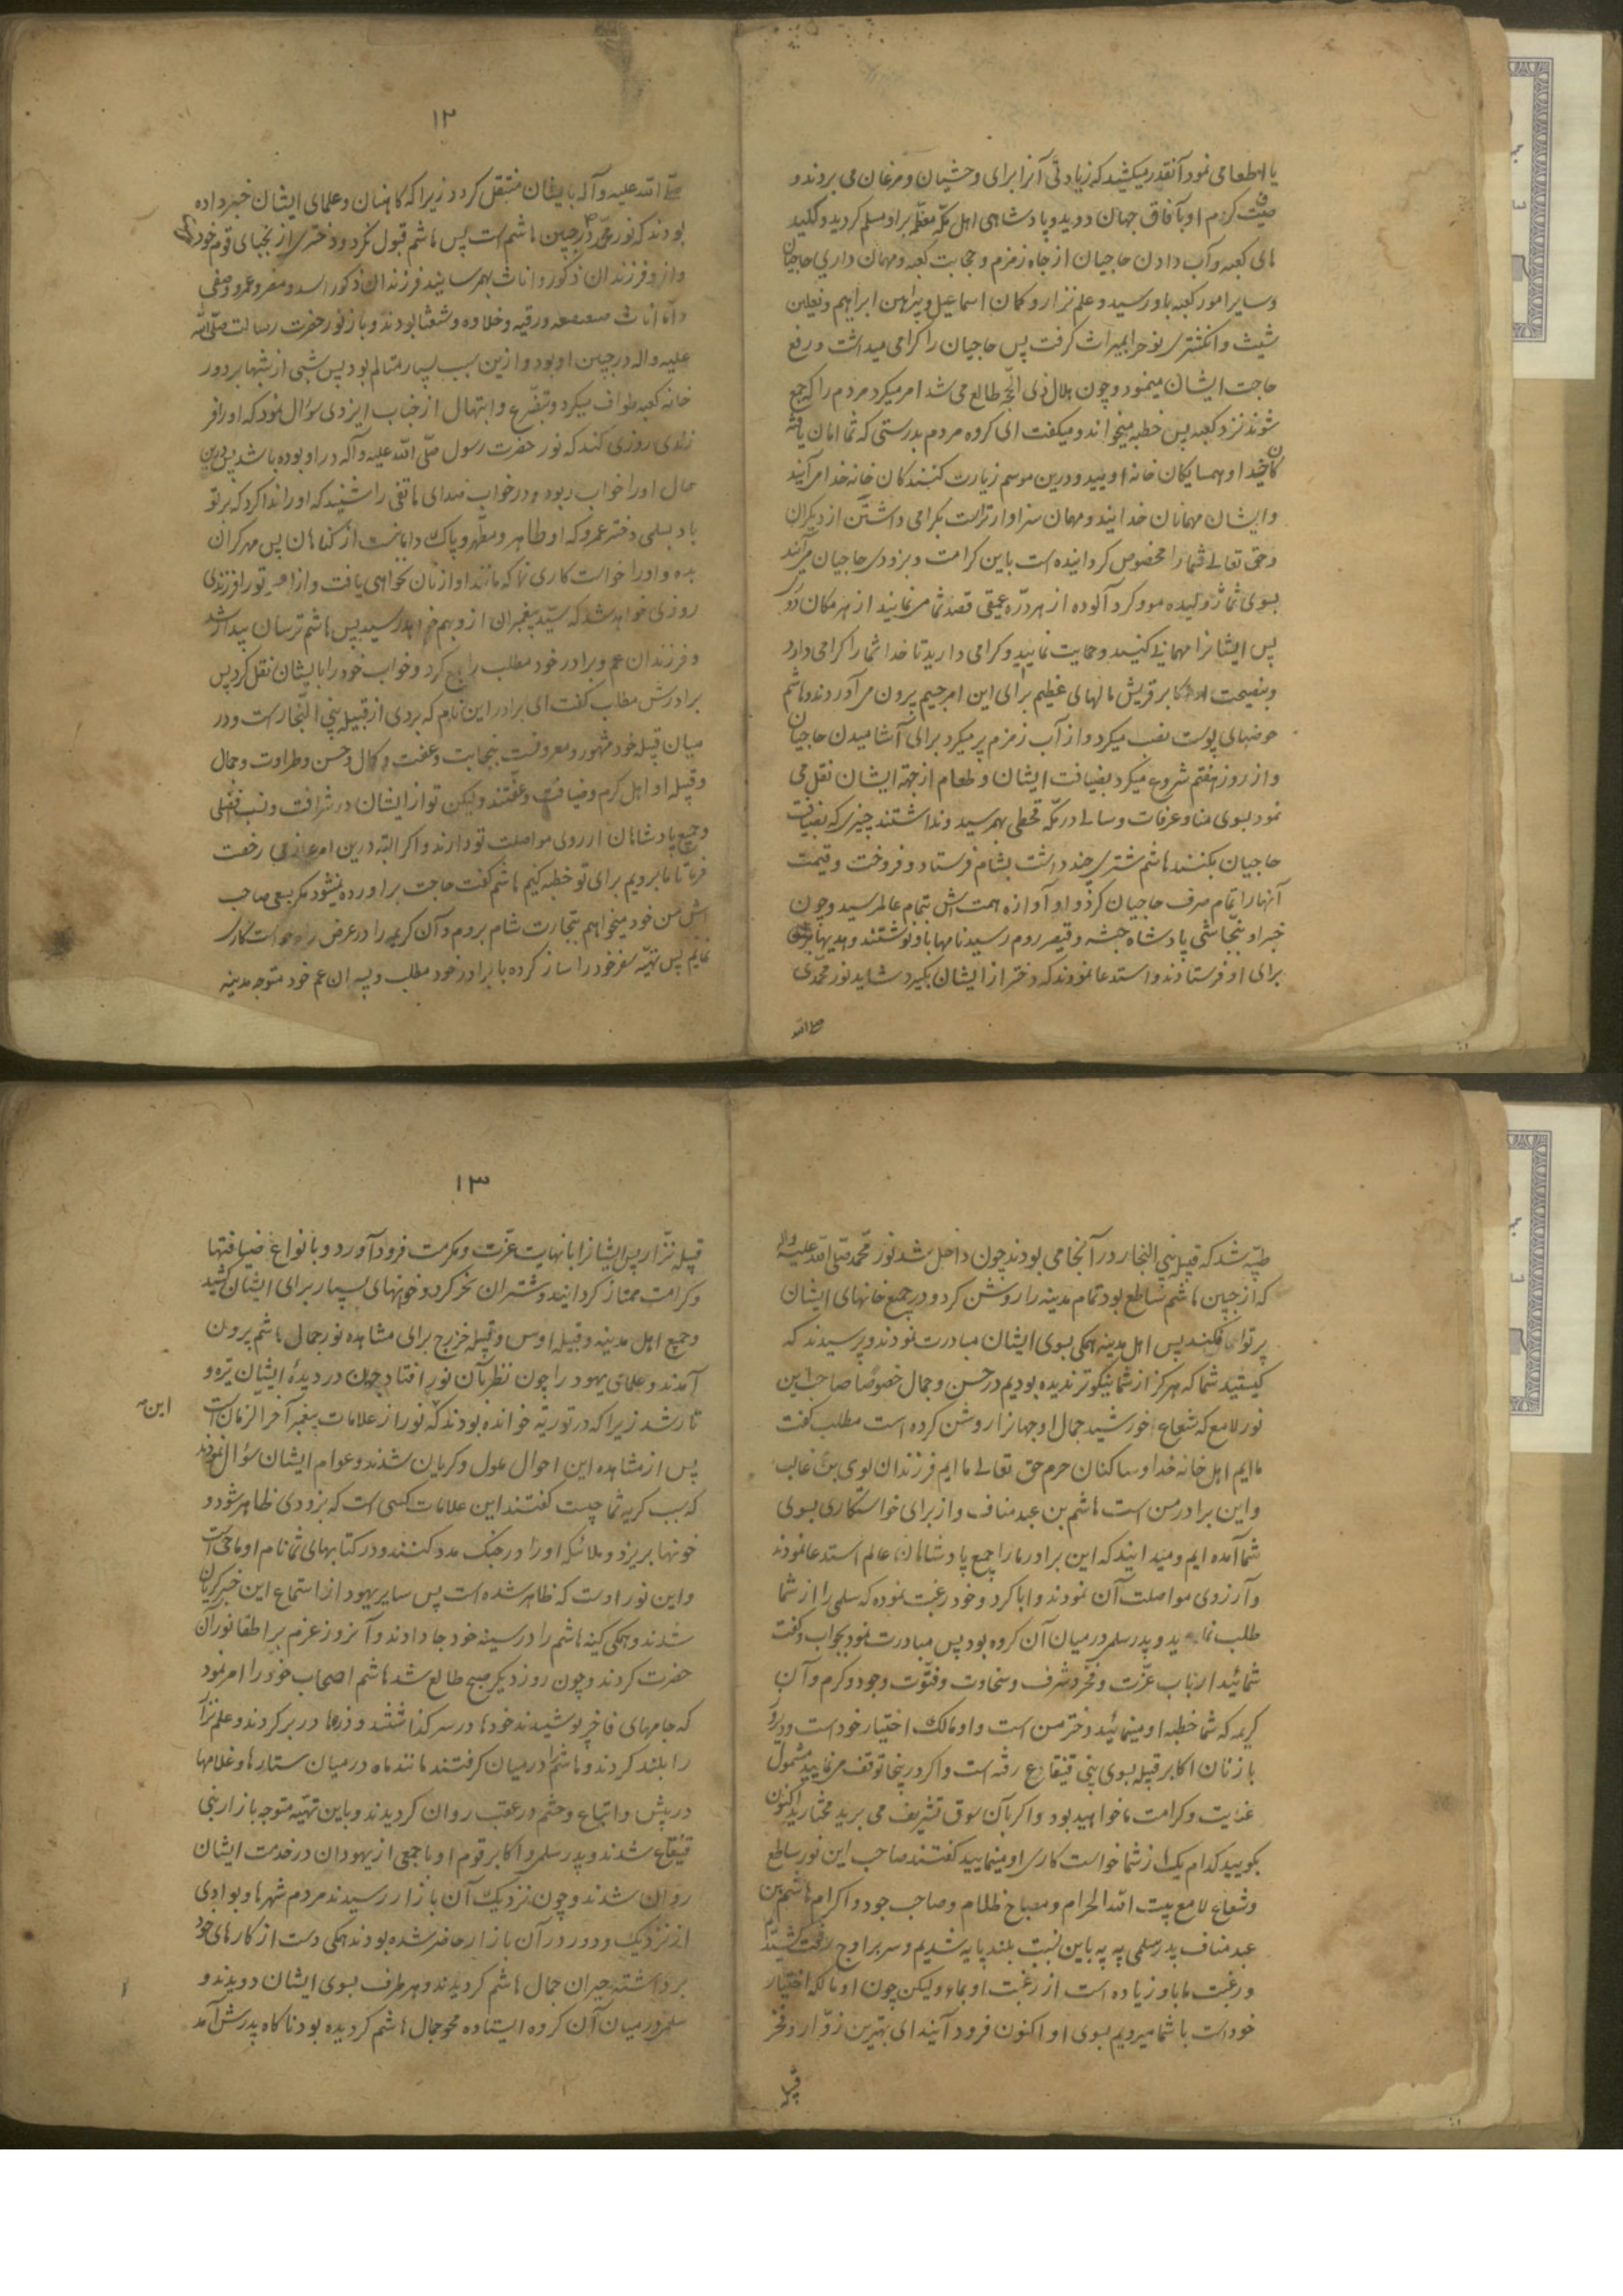 یا اطعامی نمود آنقدر میکشید که زیادتی آنرا برای وحشیان و مرغان می بردند و
صیت کرم او بآفاق جهان دوید و پادشاهی اهل مکه معظمه براو مسلم کردید و کلید
های کعبه و آب دادن حاجیان از چاه زمزم و حجابت کعبه و مهمان داری حاجیان
و سایر امور کعبه باو رسید و علم نزار و کمان اسماعیل و پیراهن ابراهیم و نعلین
شیث و انکشتری نوح را بمیراث کرفت پس حاجیان را کرامی میداشت و رفع
حاجت ایشان مینمود و چون هلال ذی الحجه طالع می شد امر میکرد مردم را که جمع
شوند نزد کعبه پس خطبه میخواند و میکفت ای کروه مردم بدرستی که شما امان یافته
کان خدا و همسایکان خانه اویید و درین موسم زیارت کنندکان خانه خدا می آیند
و ایشان مهمانان خدایند و مهمان سزاوارتراست بکرامی داشتن از دیکران
و حق تعالی شما را مخصوص کردانیده است باین کرامت و بزودی حاجیان می آیند
بسوی شما ژولیده مو و کرد آلوده از هر دره عمیقی قصد شما می نمایند از هر مکان دوری
پس ایشانرا مهمانی کنید و حمایت نمایید و کرامی دارید تا خدا شما را کرامی دارد
و بنصیحت او اکابر قریش مالهای عظیم برای این امر جسیم بیرون می آوردند و هاشم
حوضهای پوست نصب میکرد و از آب زمزم پر میکرد برای آشامیدن حاجیان
و از روز هفتم شروع میکرد بضیافت ایشان و طعام از جهة ایشان نقل می
نمود بسوی منا و عرفات و سالی در مکه قحطی بهم رسید و نداشتند چیزی که بضیافت
حاجیان بکنند هاشم شتری چند داشت بشام فرستاد و فروخت و قیمت
آنها را تمام صرف حاجیان کرد و آوازه همت اش بتمام عالم رسید و چون
خبر او بنجاشی پادشاه حبشه و قیصر روم رسید نامها باو نوشتند و هدیها
برای او فرستادند و استدعا نمودند که دختر از ایشان بکیرد شاید نور محمدی
صلی الله
۱۲
صلی الله علیه و آله بایشان منتقل کردد زیرا که کاهنان و علمای ایشان خبر داده
بودند که نور محمد در جبین هاشم است پس هاشم قبول نکرد و دختری از نجبای قوم خود
و از و فرزندان ذکور و اناث بهم رسانید فرزندان ذکور اسد و مضر و عمرو و صیفی
و اما اناث صعصعه و رقیه و خلاده و شعثا بودند و باز نور حضرت رسالت صلی الله
علیه واله در جبین او بود و ازین سبب بسیار متالم بود پس شبی از شبها بر دور
خانه کعبه طواف میکرد و بتضرع و ابتهال از جناب ایزدی سؤال نمود که اورا فر
زندی روزی کند که نور حضرت رسول صلی الله علیه وآله در او بوده باشد پس درین
حال اورا خواب ربود و در خواب صدای هاتفی را شنید که اورا ندا کرد که بر تو
باد بسلمی دختر عمرو که او طاهر و مطهر و پاک دامانست از کناهان پس مهر کران
بده و اورا خواست کاری نما که مانند او از زنان نخواهی یافت و ازو تورا فرزندی
روزی خواهد شد که سید پیغمبران ازو بهم خواهد رسید پس هاشم ترسان بیدار شد
و فرزندان عم و برادر خود مطلب را جمع کرد و خواب خود را بایشان نقل کرد پس
برادرش مطلب کفت ای برادر این نام که بردی از قبیله بنی النجار است و در
میان قبیله خود مشهور و معروفست بنجابت و عفت و کمال و حسن و طراوت و جمال
و قبیله او اهل کرم و ضیافت و عفتند و لیکن تو از ایشان در شرافت و نسب افضلی
و جمیع پادشاهان آرزوی مواصلت تو دارند و اکر البته درین امر عازمی رخصت
فرما تا ما برویم برای تو خطبه کنیم هاشم کفت حاجت براورده نیشود مکر بسعی صاحب
اش من خود میخواهم بتجارت شام بروم و آن کریمه را در عرض راه خواست کاری
نمایم پس تهیه سفر خود را ساز کرده با برادر خود مطلب و پسران عم خود متوجه مدینه
طیبه شد که قبیله بنی النجار در آنجا می بودند چون داخل شد نور محمد صلی الله علیه واله
که از جبین هاشم ساطع بود تمام مدینه را روشن کرد و در جمیع خانهای ایشان
پرتو افکند پس اهل مدینه همکی بسوی ایشان مبادرت نمودند و پرسیدند که
کیستید شما که هرکز از شما نیکوتر ندیده بودیم در حسن و جمال خصوصا صاحب این
نور لامع که شعاع خورشید جمال او جهانرا روشن کرده است مطلب کفت
ماایم اهل خانه خدا و ساکنان حرم حق تعالی ماایم فرزندان لوی بن غالب
و این برادر من است هاشم بن عبد مناف و از برای خواستکاری بسوی
شما آمده ایم و میدانید که این برادر مارا جمیع پادشاهان عالم استدعا نمودند
و آرزوی مواصلت آن نمودند و ابا کرد و خود رغبت نموده که سلمی را از شما
طلب نماید و پدر سلمی در میان آن کروه بود پس مبادرت نمود بجواب و کفت
شمائید ارباب عزت و فخر و شرف و سخاوت و فتوت و جود و کرم و آن
کریمه که شما خطبه او مینمائید دختر من است و او مالک اختیار خود است و دیروز
با زنان اکابر قبیله بسوی بنی قینقاع رفته است و اکر در ینجا توقف می نمایید مشمول
عنایت و کرامت ما خواهید بود و اکر بآن سوق تشریف می برید مختارید اکنون
بکویید کدام یک از شما خواست کاری او مینمایید کفتند صاحب این نور ساطع
و شعاع لامع بیت الله الحرام و مصباح ظلام و صاحب جود و اکرام هاشم بن
عبد مناف پدر سلمی به به باین نسبت بلند پایه شدیم و سر بر اوج رفعت کشیدیم
و رغبت ما باو زیاده است از رغبت او بما و لیکن چون او مالکه اختیار
خود است با شما میرویم بسوی او اکنون فرود آیند ای بهترین زوار و فخر
قبیله
۱۳
قبیله نزار پس ایشانرا با نهایت عزت و مکرمت فرود آورد و بانواع ضیافتها
و کرامت ممتاز کردانید و شتران نحر کرد و خوانهای بسیار برای ایشان کشید
و جمیع اهل مدینه و قبیله اوس و قبیله خزرج برای مشاهده نور جمال هاشم بیرون
آمدند و علمای یهود را چون نظر بآن نور افتاد جهان در دیدهٔ ایشان تیره و
تار شد زیرا که در توریة خوانده بودند که نور از علامات پیغمبر آخر الزمان است
این
پس از مشاهده این احوال ملول و کریان شدند و عوام ایشان سؤال نمودند
که سبب کریه شما چیست کفتند این علامات کسی است که بزودی ظاهر شود و
خونها بریزد و ملائکه اورا در جنک مدد کنند و در کتابهای شما نام او ماحی است
و این نور اوست که ظاهر شده است پس سایر یهود از استماع این خبر کریان
شدند و همکی کینه هاشم را در سینه خود جا دادند و آنروز عزم بر اطفا نور آن
حضرت کردند و چون روز دیکر صبح طالع شد هاشم اصحاب خود را امر نمود
که جامهای فاخر پوشیدند خودها در سر کذاشتند و زرها در بر کردند و علم نزار
را بلند کردند و هاشم را در میان کرفتند مانند ماه در میان ستارها و غلامها
در پیش و اتباع و حشم در عقب روان کردیدند و باین تهیه متوجه بازار بنی
قینقاع شدند و پدر سلمی و اکابر قوم او با جمعی از یهودان در خدمت ایشان
روان شدند و چون نزدیک آن بازار رسیدند مردم شهرها و بوادی
از نزدیک و دور در آن بازار حاضر شده بودند همکی دست از کارهای خود
برداشته حیران جمال هاشم کردیدند و هر طرف بسوی ایشان دویدند و
سلمی در میان آن کروه ایستاده محو جمال هاشم کردیده بود ناکاه پدرش آمد